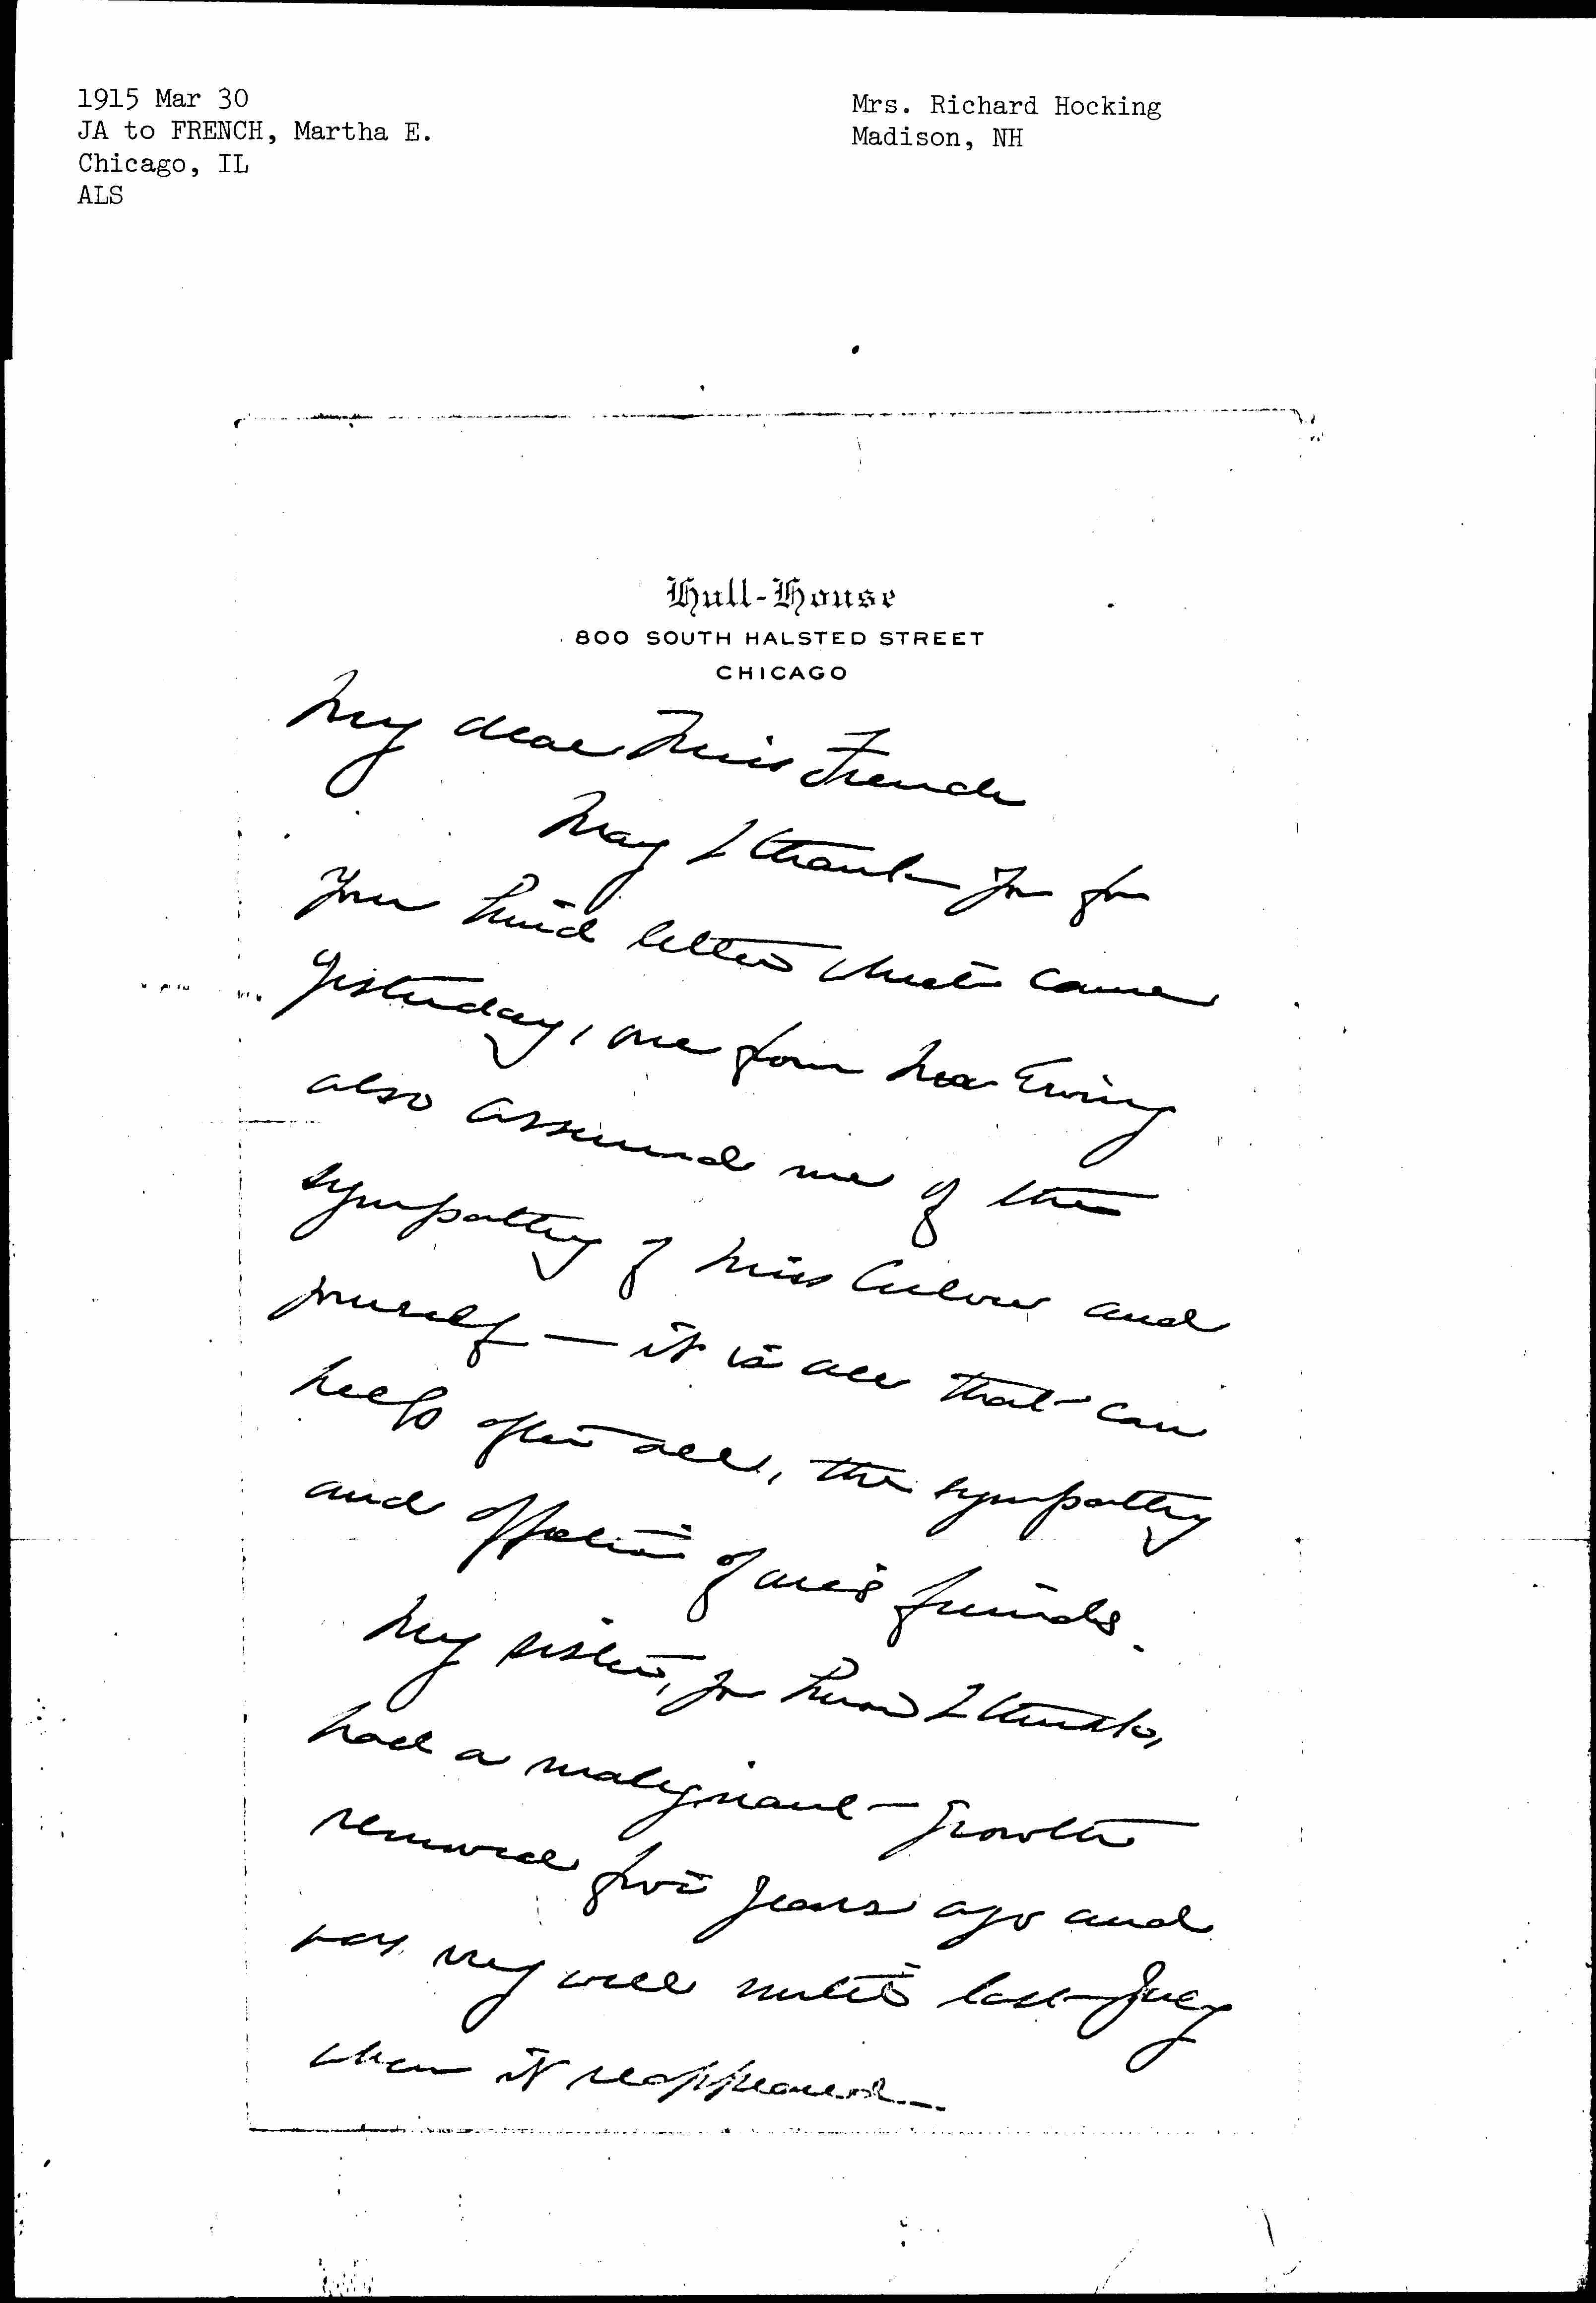 1915 Mar 30
JA to FRENCH, Martha E.
Chicago, IL
ALS
Mrs. Richard Hocking
Madison, NH
Hull-House
800 SOUTH HALSTED STREET
CHICAGO
My dear Miss French
May I thank you for
your kind letter which came
yesterday, one from Mrs Ewing
also assured me of the
sympathy of Miss and
yourself — it is all that can
help after all, the sympathy
and affection of one's friends.
My sister, you know I think,
had a malignant growth
removed five years ago and
was very well until last July
when it reappeared